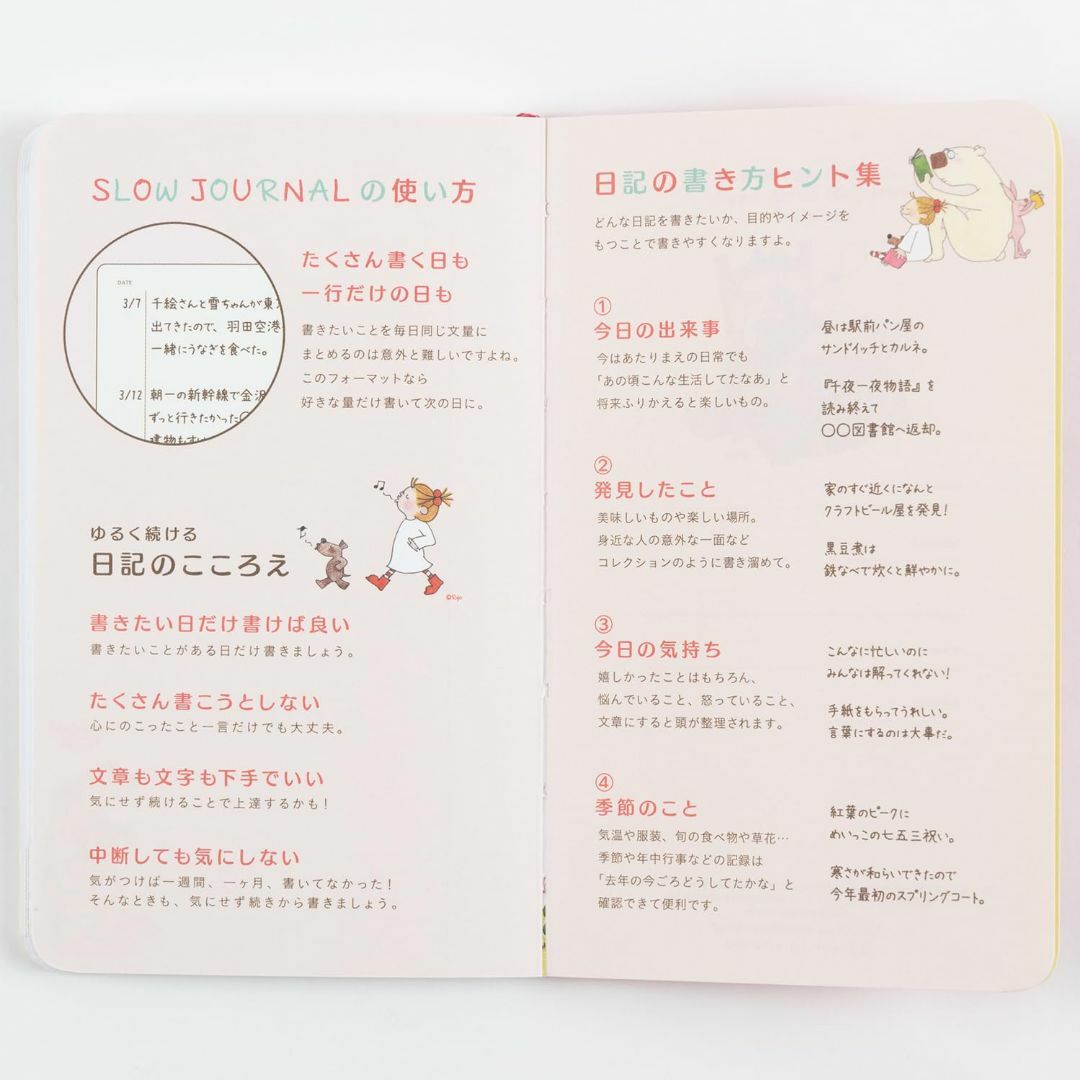 SLOW JOURNALの使い方
DATE
3/7 千絵さんと雪ちゃんが東
出てきたので、羽田空港
一緒にうなぎを食べた。
3/12 朝一の新幹線で金沢
ずっと行きたかった
建物も
たくさん書く日も
一行だけの日も
書きたいことを毎日同じ文量に
まとめるのは意外と難しいですよね。
このフォーマットなら
好きな量だけ書いて次の日に。
ゆるく続ける
日記のこころえ
書きたい日だけ書けば良い
書きたいことがある日だけ書きましょう。
たくさん書こうとしない
心にのこったこと一言だけでも大丈夫。
文章も文字も下手でいい
気にせず続けることで上達するかも!
中断しても気にしない
気がつけば一週間、一ヶ月、書いてなかった!
そんなときも、気にせず続きから書きましょう。
日記の書き方ヒント集
どんな日記を書きたいか、目的やイメージを
もつことで書きやすくなりますよ。
①
今日の出来事
今はあたりまえの日常でも
「あの頃こんな生活してたなあ」と
将来ふりかえると楽しいもの。
昼は駅前パン屋の
サンドイッチとカルネ。
『千夜一夜物語』を
読み終えて
〇〇図書館へ返却。
②
発見したこと
美味しいものや楽しい場所。
身近な人の意外な一面など
コレクションのように書き溜めて。
家のすぐ近くになんと
クラフトビール屋を発見!
黒豆煮は
鉄なべで炊くと鮮やかに。
③
今日の気持ち
嬉しかったことはもちろん、
悩んでいること、怒っていること、
文章にすると頭が整理されます。
こんなに忙しいのに
みんなは解ってくれない!
手紙をもらってうれしい。
言葉にするのは大事だ。
④
季節のこと
気温や服装、旬の食べ物や草花…
季節や年中行事などの記録は
「去年の今ごろどうしてたかな」と
確認できて便利です。
紅葉のピークに
めいっこの七五三祝い。
寒さが和らいできたので
今年最初のスプリングコート。